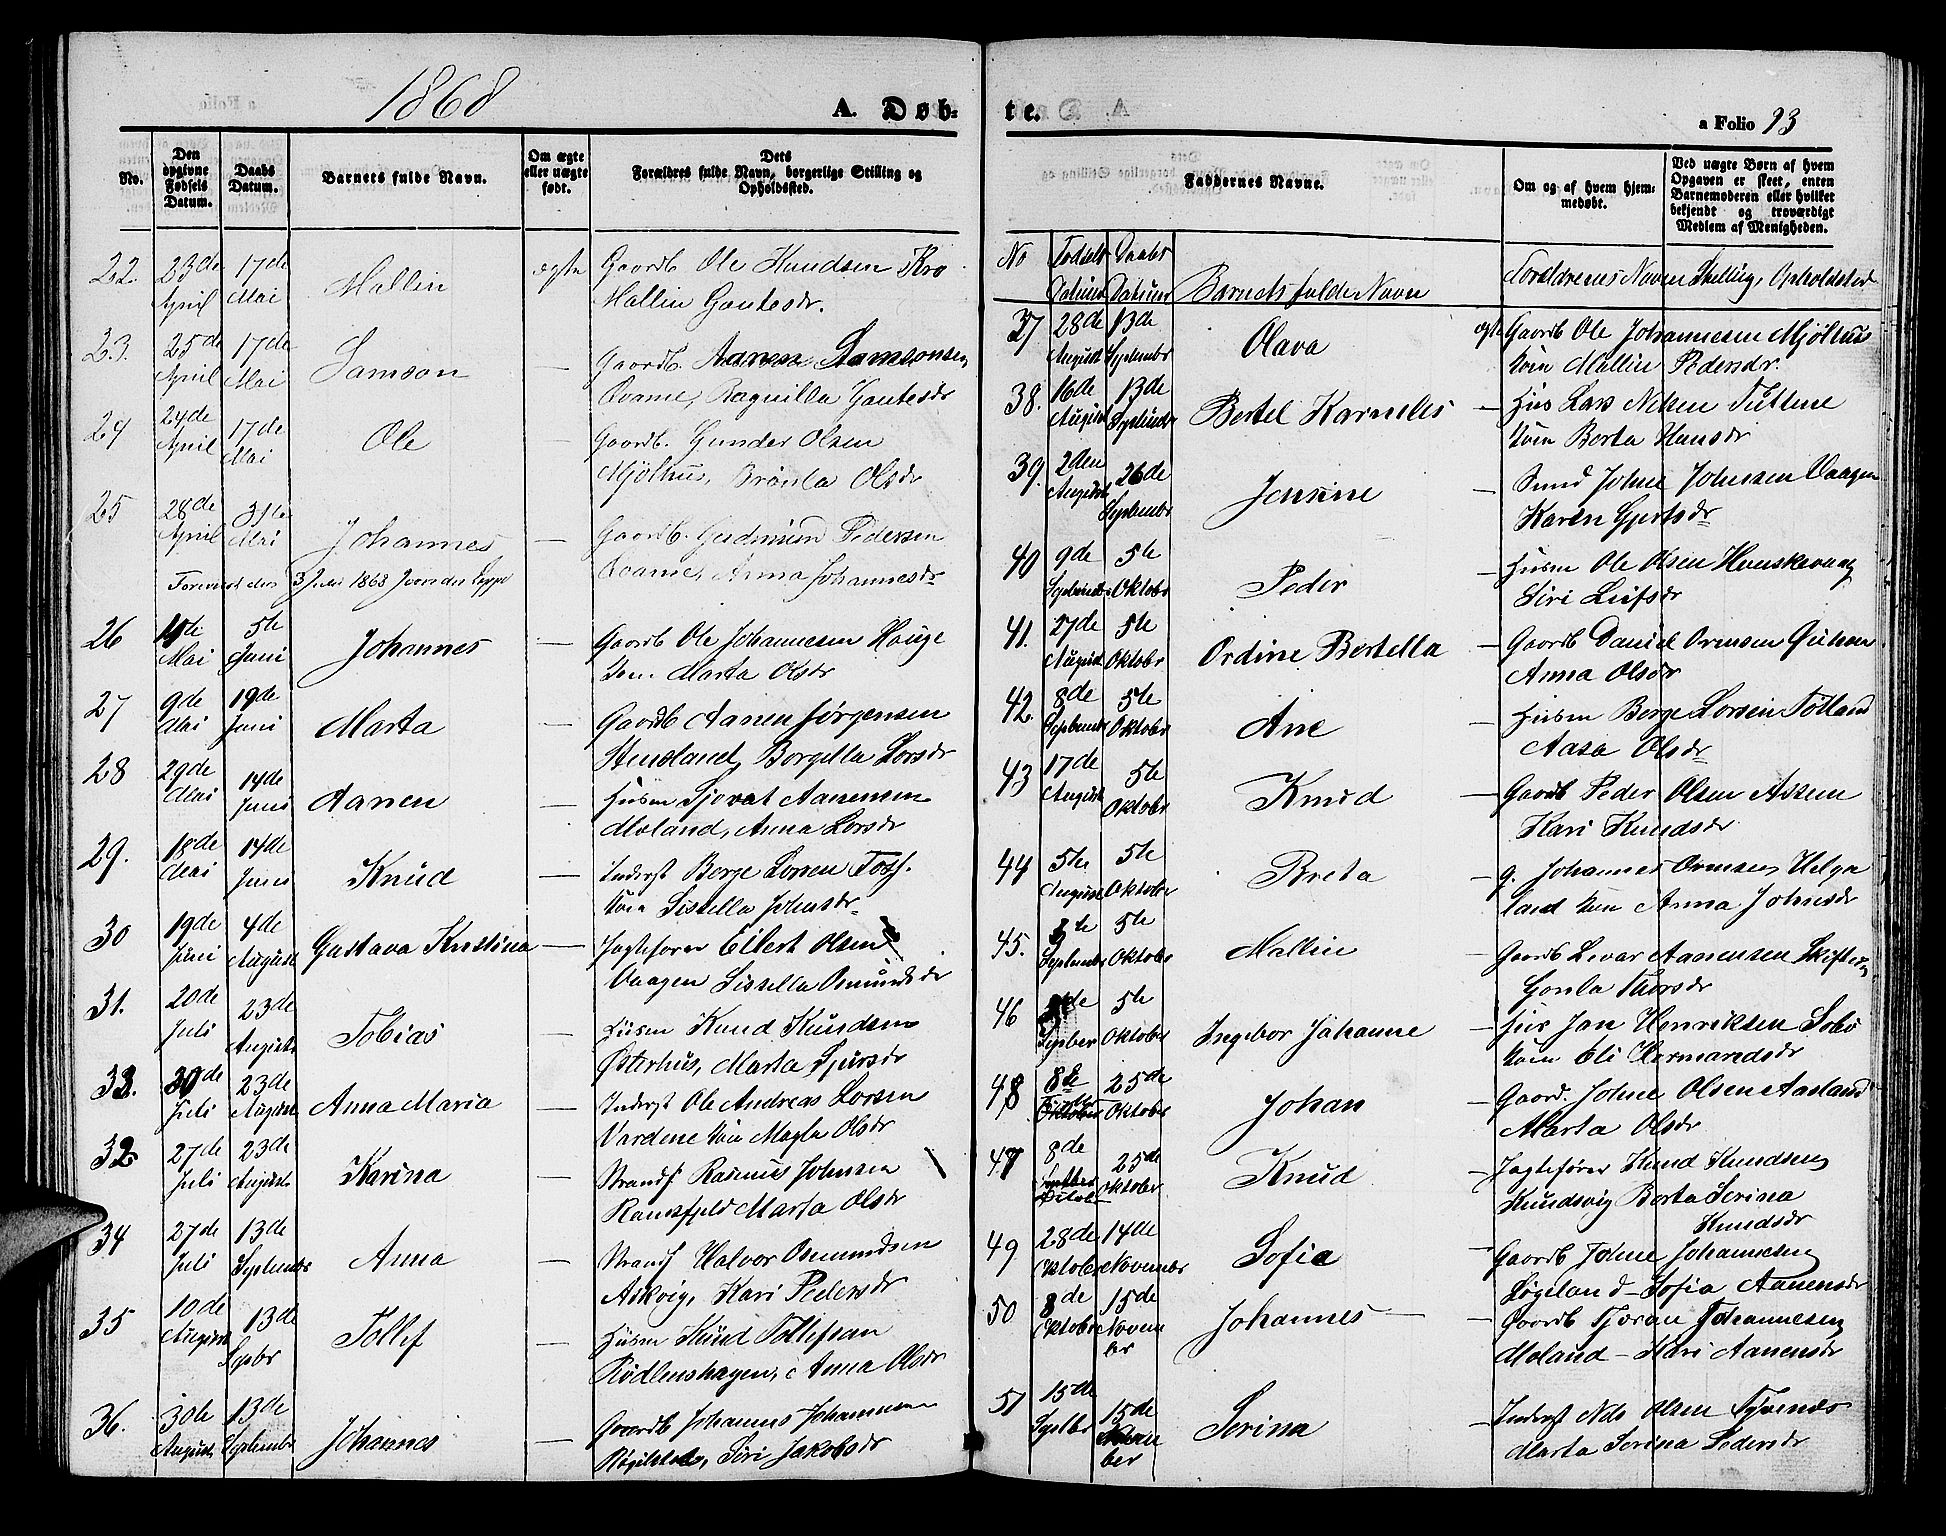 1868
A. Døb-
No.
Den opgivne Fødsels Datum.
Daabs Datum.
Barnets fulde Navn.
Om ægte eller uægte født.
Dets Forældres fulde Navn, borgerlige Stilling og Opholdssted.
22. 23de April 17de Mai Mallin ægte Gaardb Ole Knudsen Kro
Mallin Gautesdr.
23. 25de April 17de Mai Samson — Gaardb. Aanen Samsonsen
Qvame, Ragnilla Gautesdr
24 24de April 17de Mai Ole — Gaardb. Gunder Olsen
Mjølhus, Brønla Olsdr
25 28de April 31te Mai Johannes — Gaardb. Gudmund Pedersen
Qvame, Anna Johannesdr
3 Juli 1868
26 Mai 5te Juni Johannes — Gaardb Ole Johannesen Hauge
Marta Olsdr
27 9de Mai 19de Juni Marta — Gaardb Aanen Jørgensen
Stensland, Borgilla Lorsdr
28 29de Mai 14de Juni Aanen — Husm Sjovat Aanensen
Moland, Anna Lorsdr
29. 18de Mai 14de Juni Knud — Inderst Borge Lorsen
Kone Sissella Johnsdr
30 19de Juni 4de August Gustava Kristina — Jagtefører Eilert Olsen
Vaagen Sissella Osmundsdr
31. 20de Juli 23de August Tobias — Husm Knud Knudsen
Østerhus, Marta Sjursdr
33. 30de Juli 23de August Anna Maria — Inderst Ole Andreas Lorsen
Vardene Kone Magla Olsdr
32 27de Juli 23de August Karina — Strands Rasmus Johnsen
Ramsfjeld Marta Olsdr
34 27de Juli 13de Septembr Anna — Strands Halvor Osmundsen
Askvig, Kari Pedersdr
35 10de August 13de Sepbr Tollef — Husm Knud Tollefsen
Rødlenshagen, Anna Olsdr
36. 30de August 13de Septembr Johannes — Gaardb Johannes Johannesen
Siri Jakobsdr
te.
a Folio 93
Faddernes Navne.
Om og af hvem hjemmedøbt.
Ved uægte Børn af hvem Opgaven er skeet, enten Barnemoderen eller hvilket bekjendt og troværdigt Medlem af Menigheden.
No Fødsels Datum Daabs Datum Barnets fulde Navn Forældrenes Navn Stilling, Opholdsted
37 28de August 13de Septembr Olava ægte Gaardb Ole Johannesen Mjølhus
Kone Mallin Pedersdr.
38. 16de August 13de Septembr Bertel Karnelus — Hus Lars Nilsen Tuttene
Kone Berta Hansdr
39. 2den August 26de Septembr Jensine — Johne Johnsen Vaagen
Karen Gjertsdr
40 9de Septembr 5te Oktobr Peder — Husm Ole Olsen
Siri Leifsdr
41. 27de August 5te Oktobr Ordine Bertella — Gaardb Daniel Ormsen
Anna Olsdr
42. 8de Septembr 5te Oktobr Ane — Husm Berge Lorsen Tøtland
Aasa Olsdr
43 17de August 5te Oktobr Knud — Gaardb Peder Olsen
Kari Knudsdr
44 5te August 5te Oktobr Breta — g. Johannes Ormsen Helga
land Kone Anna Johnsdr
45. Septembr 5te Oktobr Mallin — Gaardb Levar Aanensen
Gonla Thorsdr
46 Sepber 5te Oktobr Ingebor Johanne — Hus Jan Henriksen
Kone Eli Harmandsdr
48 8de Oktober 25de Oktobr Johan — Gaard. Johne Olsen Aasland
Marta Olsdr
47 8de 25de Oktober Knud — Jagtefører Knud Knudsen
Knudsvig Berta Serina
Knudsdr
49 28de Oktober 14de Novembr Sofie — Gaardb Johne Johannesen
Løgeland — Sofia Aanensdr
50 8de Oktober 15de Novem
ber Johannes — Gaardb Tjøran Johannesen
Moland — Kari Aanensdr
51 15de Septbr 15de
ber Serina — Inderst Nils Olsen
Marta Serina Pedersdr